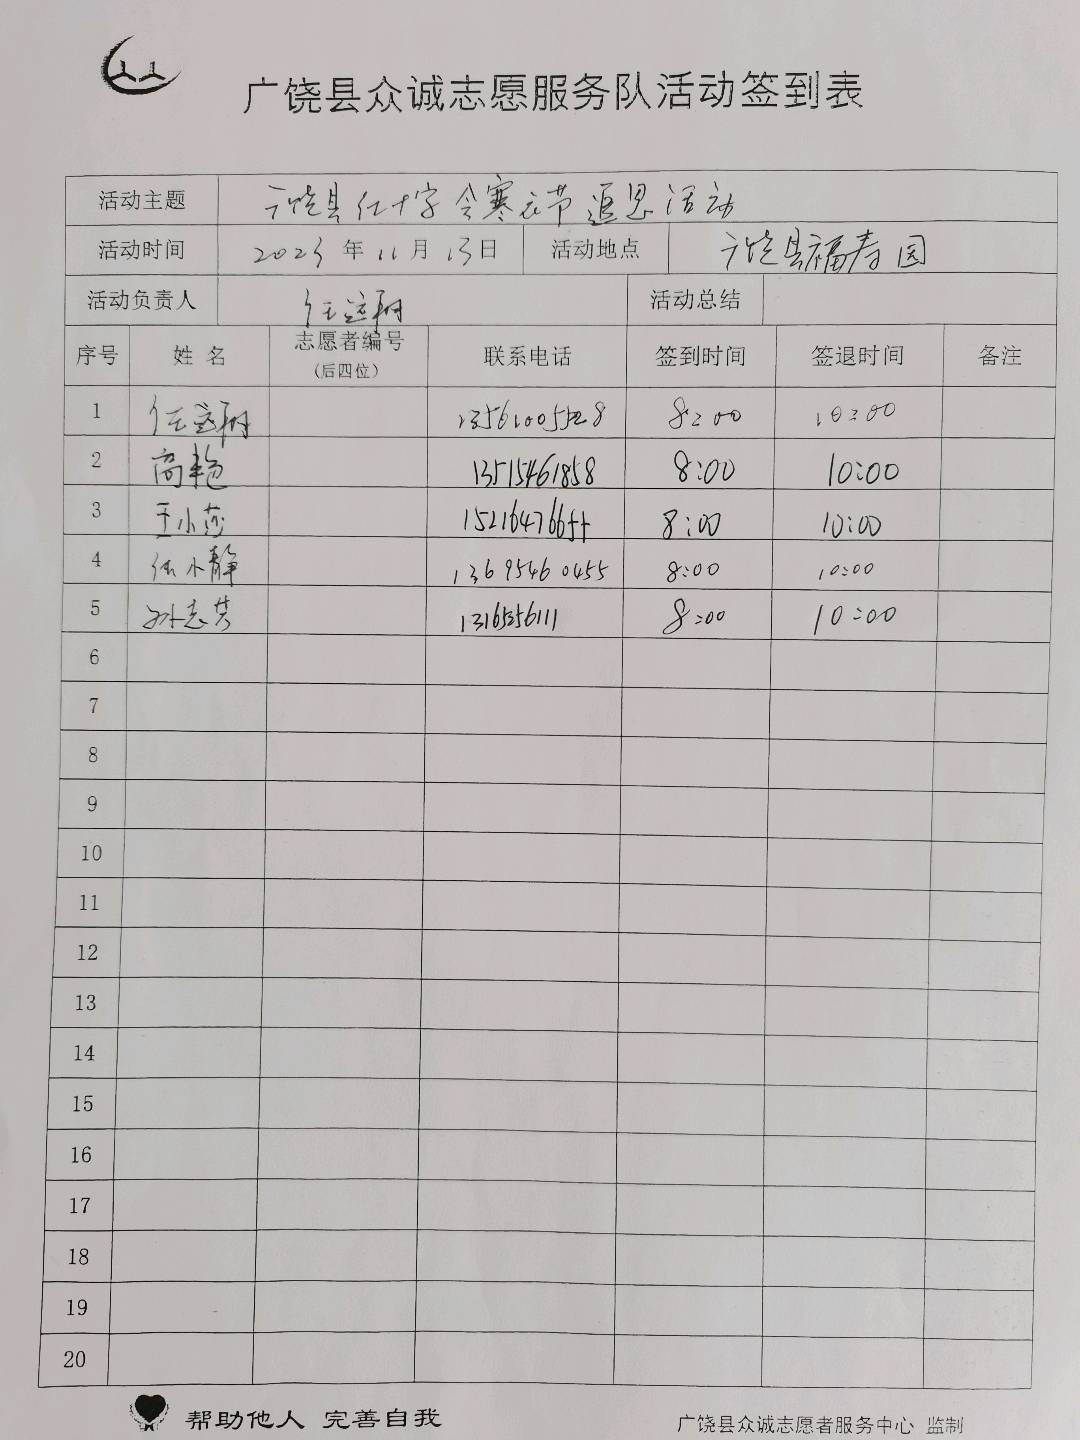 广饶县众诚志愿服务队活动签到表
活动主题 广饶县红十字会寒衣节追思活动
活动时间 2023年11月13日 活动地点 广饶县福寿园
活动负责人 活动总结
序号 姓名 志愿者编号(后四位) 联系电话 签到时间 签退时间 备注
1 8:00 10:00
2 高艳 13515461858 8:00 10:00
3 王小莎 8:00 10:00
4 任小静 13695460455 8:00 10:00
5 8:00 10:00
6
7
8
9
10
11
12
13
14
15
16
17
18
19
20
帮助他人 完善自我 广饶县众诚志愿者服务中心 监制